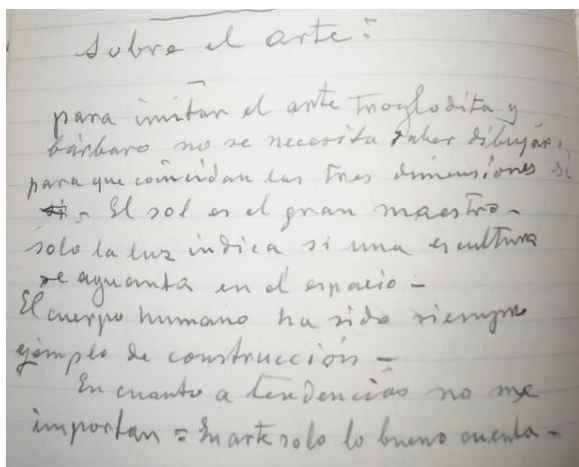 Sobre el arte:
para imitar el arte troglodita y
bárbaro no se necesita saber dibujar,
para que coincidan las tres dimensiones si
= El sol es el gran maestro -
solo la luz indica si una escultura
se aguanta en el espacio -
El cuerpo humano ha sido siempre
ejemplo de construcción -
En cuanto a tendencias no me
importan = En arte solo lo bueno cuenta -